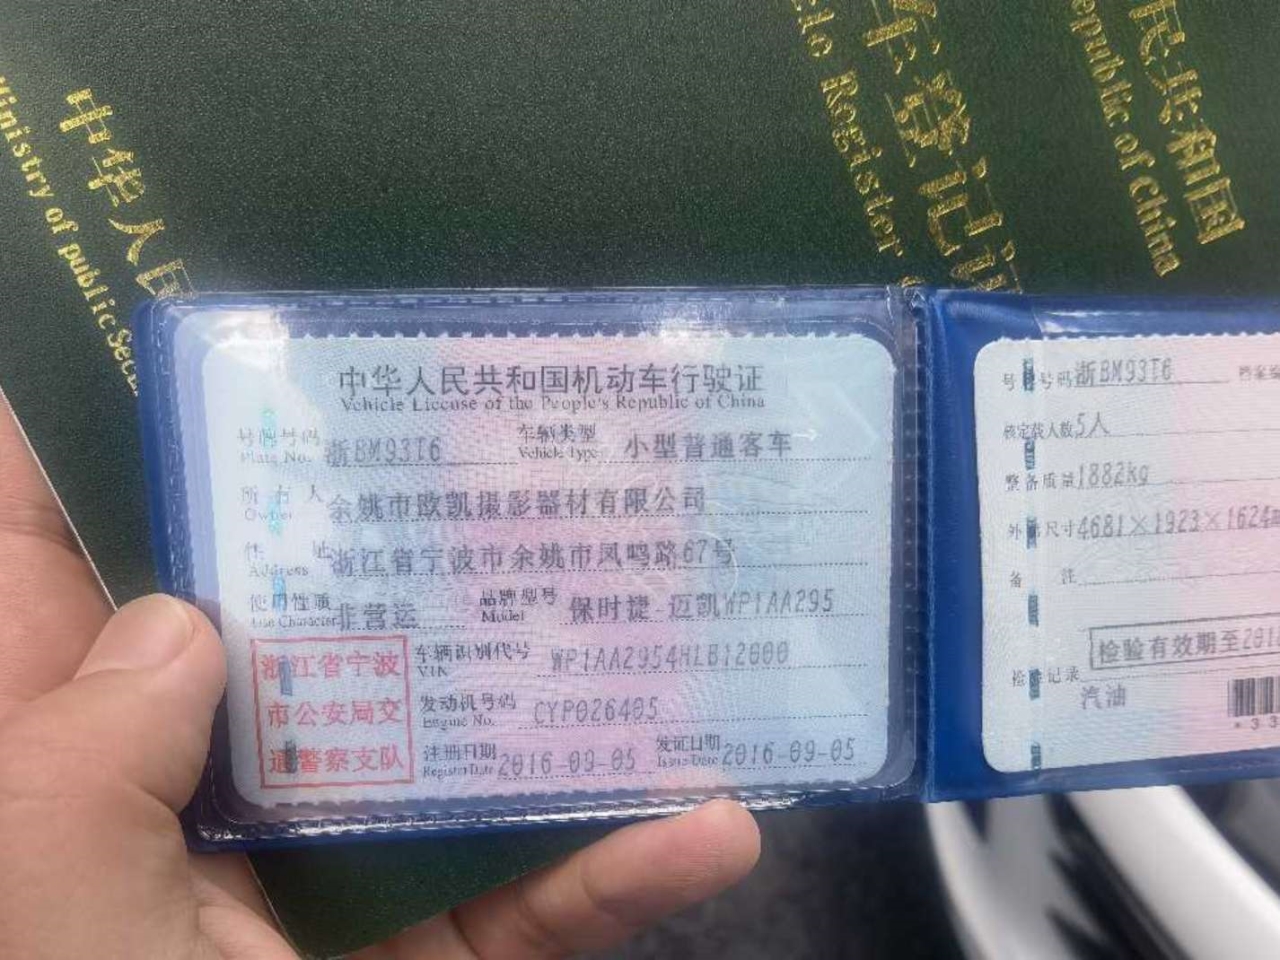 中华人民
Ministry of public Secu
车登记证
cle Register
民共和国
epublic of China
中华人民共和国机动车行驶证
Vehicle License of the People's Republic of China
号牌号码 浙BM93T6 车辆类型 小型普通客车
Plate No. Vehicle Type
所有人 余姚市欧凯摄影器材有限公司
Owner
住址 浙江省宁波市余姚市凤鸣路67号
Address
使用性质 非营运 品牌型号 保时捷-迈凯WP1AA295
Use Character Model
浙江省宁波
市公安局交
通警察支队
车辆识别代号 WP1AA2954HLB12000
VIN
发动机号码 CYP026405
Engine No.
注册日期 2016-09-05 发证日期 2016-09-05
Register Date Issue Date
号牌号码 浙BM93T6 档案编
核定载人数 5人
整备质量 1882kg
外廓尺寸 4681×1923×1624
备注
检验有效期至201
检验记录
汽油
*33